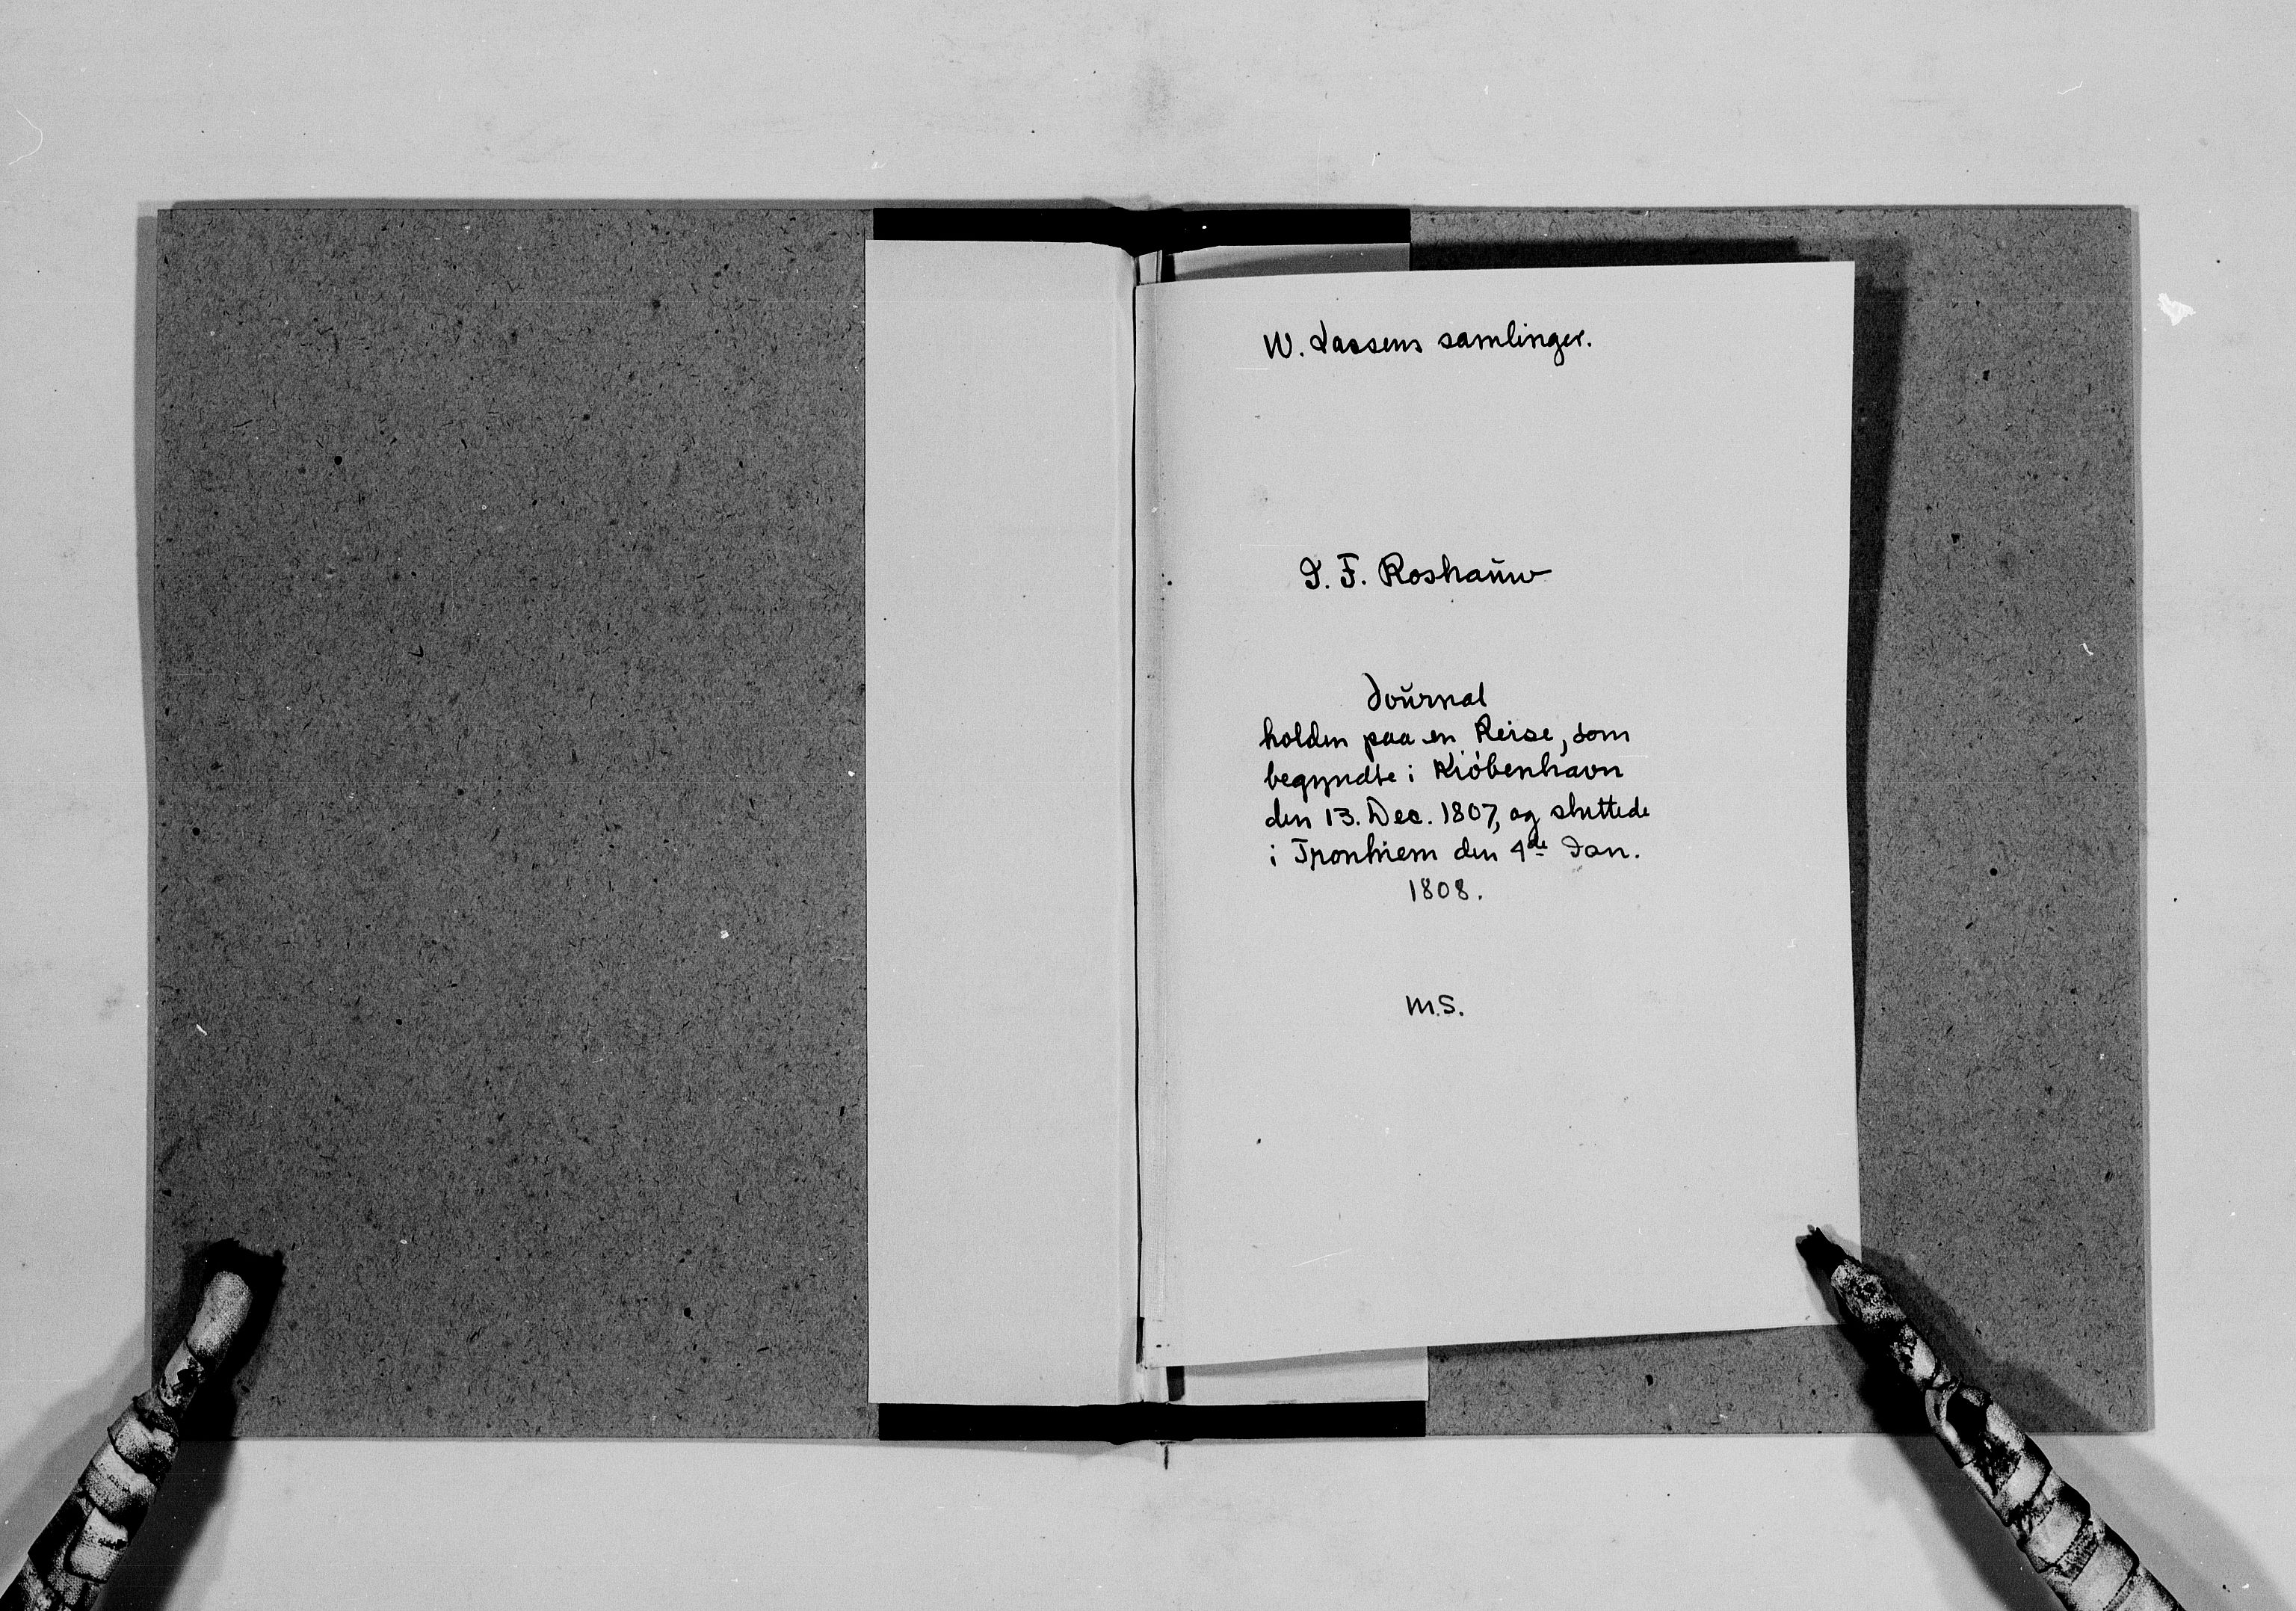 W. Lassens samlinger.
I. F. Roshauw
Journal
holden paa en Reise, som
begyndte i Kiöbenhavn
den 13. Dec. 1807, og sluttede
i Tronhiem den 4de Jan.
1808.
M.S.